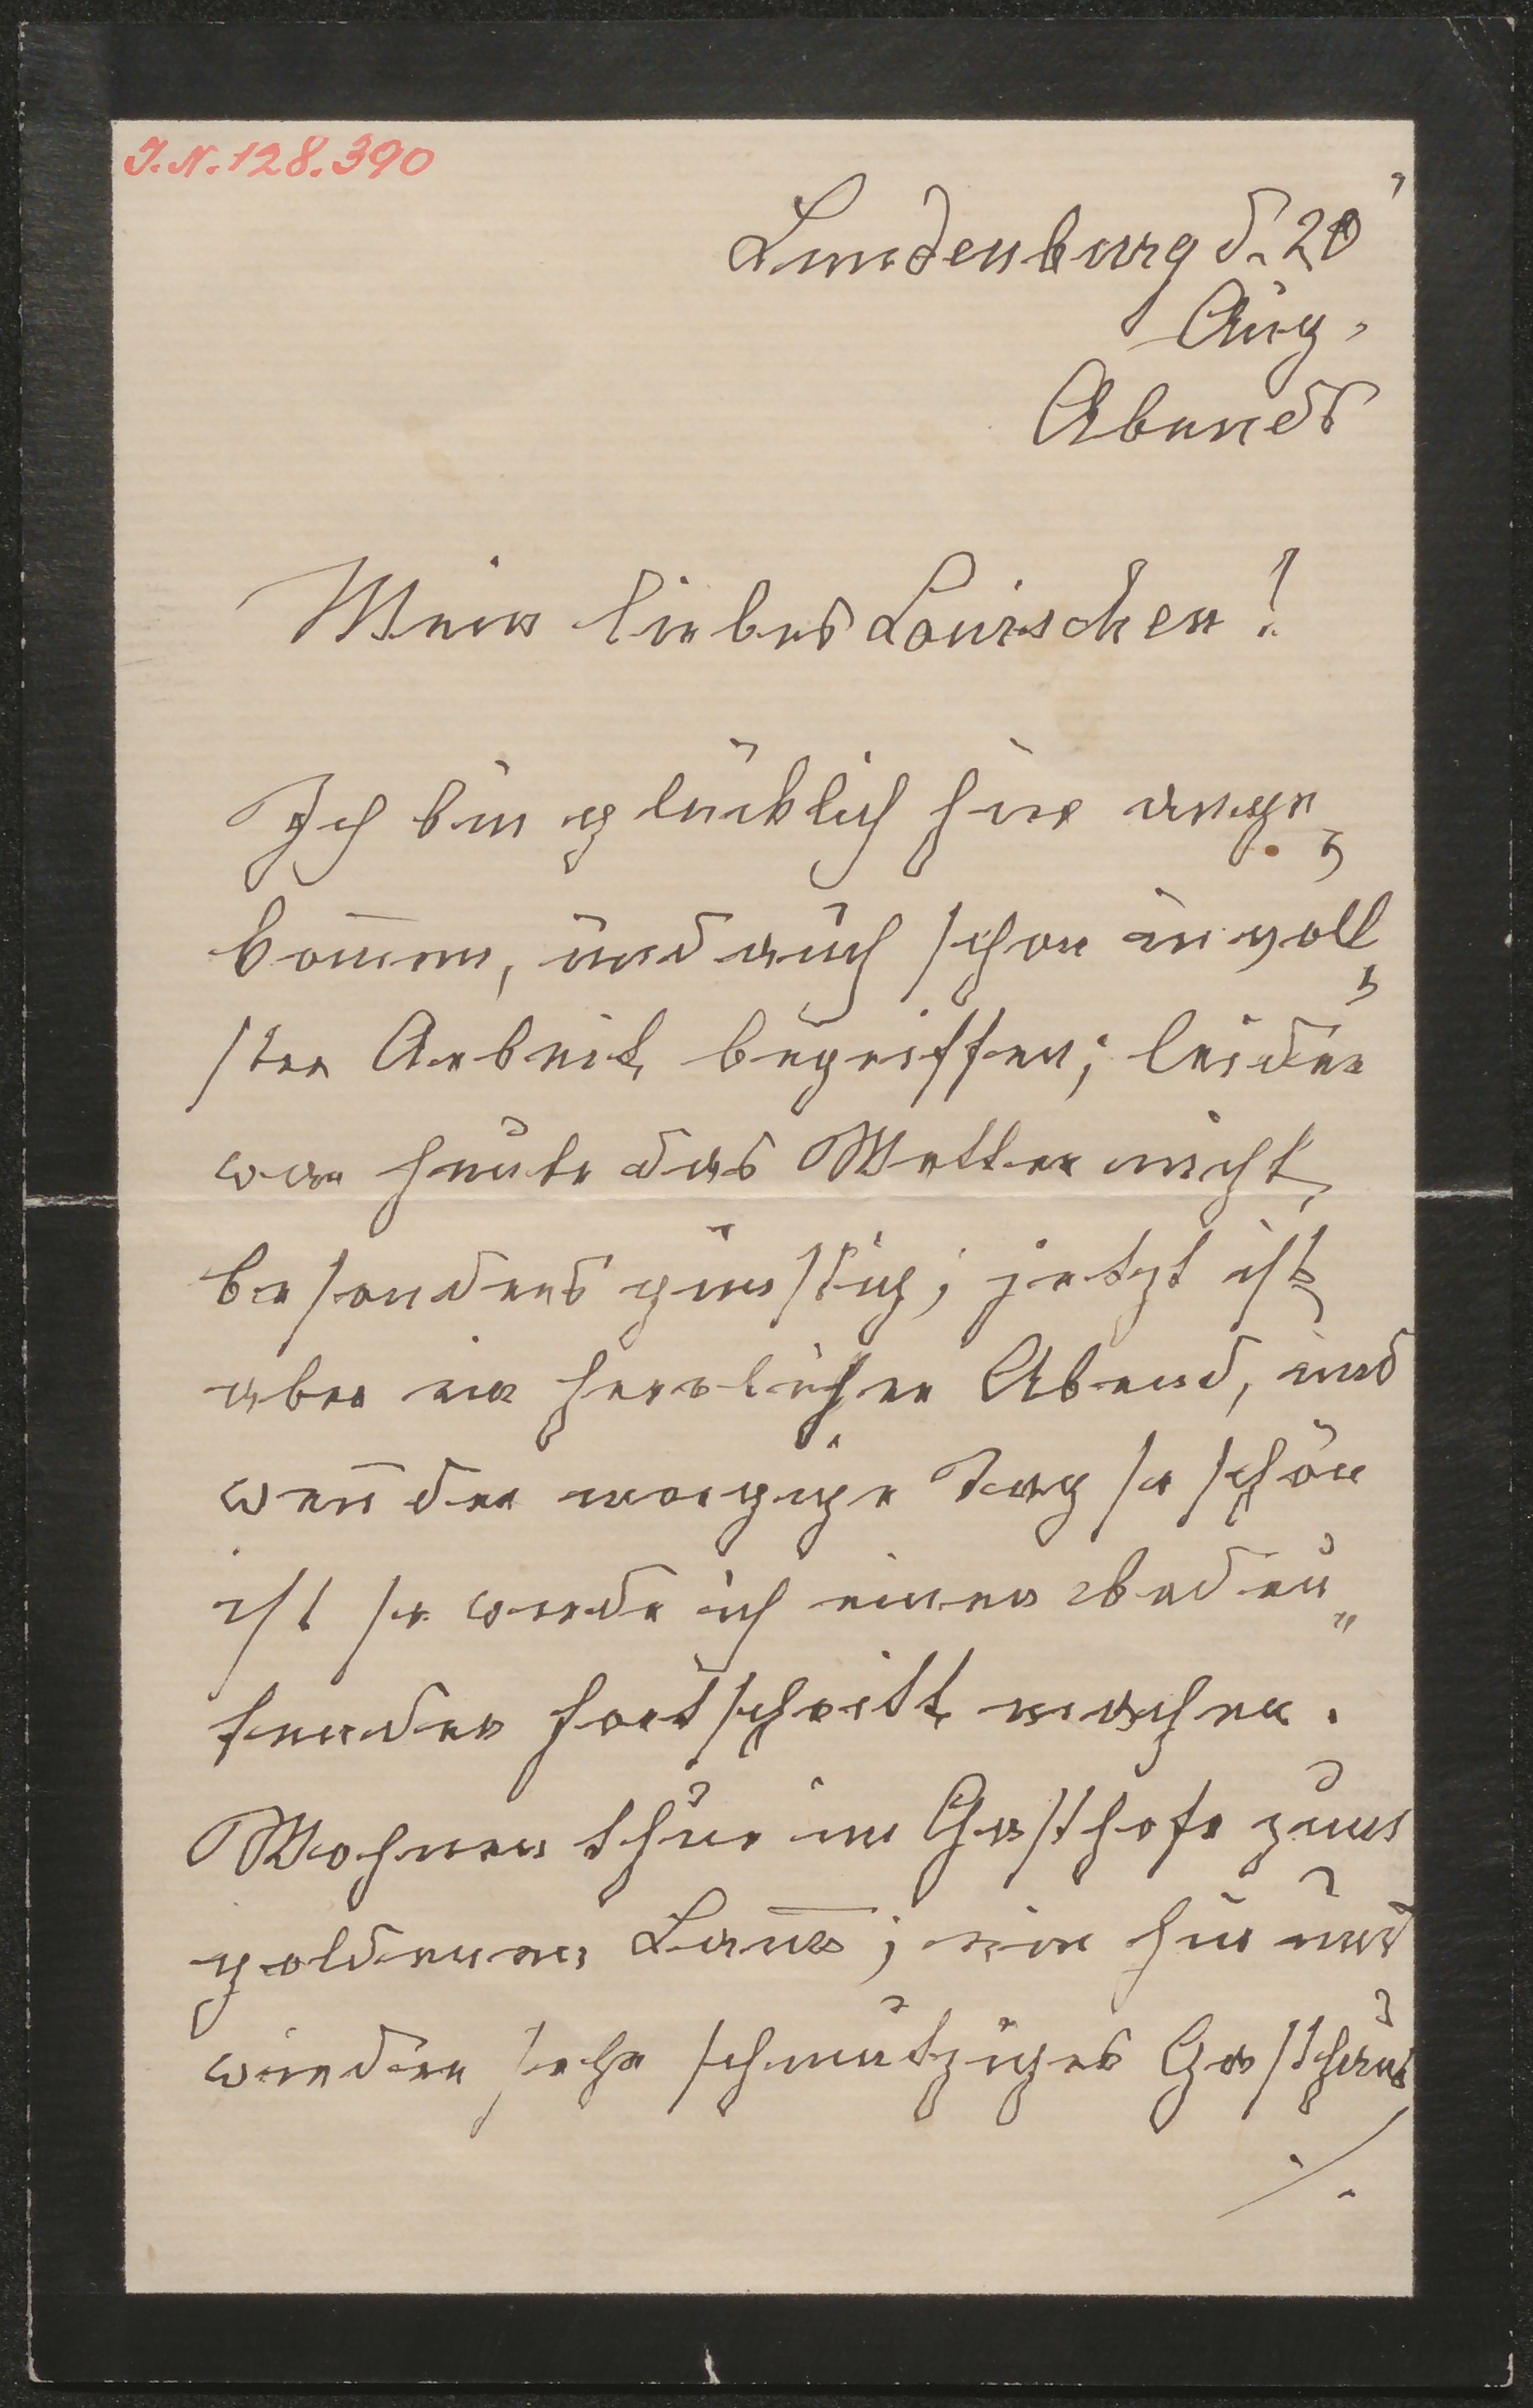 J.N. 128.390
Lundenburg d. 20
Aug.
Abends
Mein liebes Louischen!
Ich bin glücklich hier ange-
kom̄en, und auch schon in voll-
ster Arbeit begriffen; leider
war heute das Wetter nicht
besonders günstig; jetzt ist
aber ein herrlicher Abend, und
wen̄ der morgige Tag so schön
ist so werde ich einen bedeu„
tenden Fortschritt machen.
Wohnen thue im Gasthofe zum
goldenen Lam̄; ein hin und
wieder sehr schmutziges Gasthaus
./.